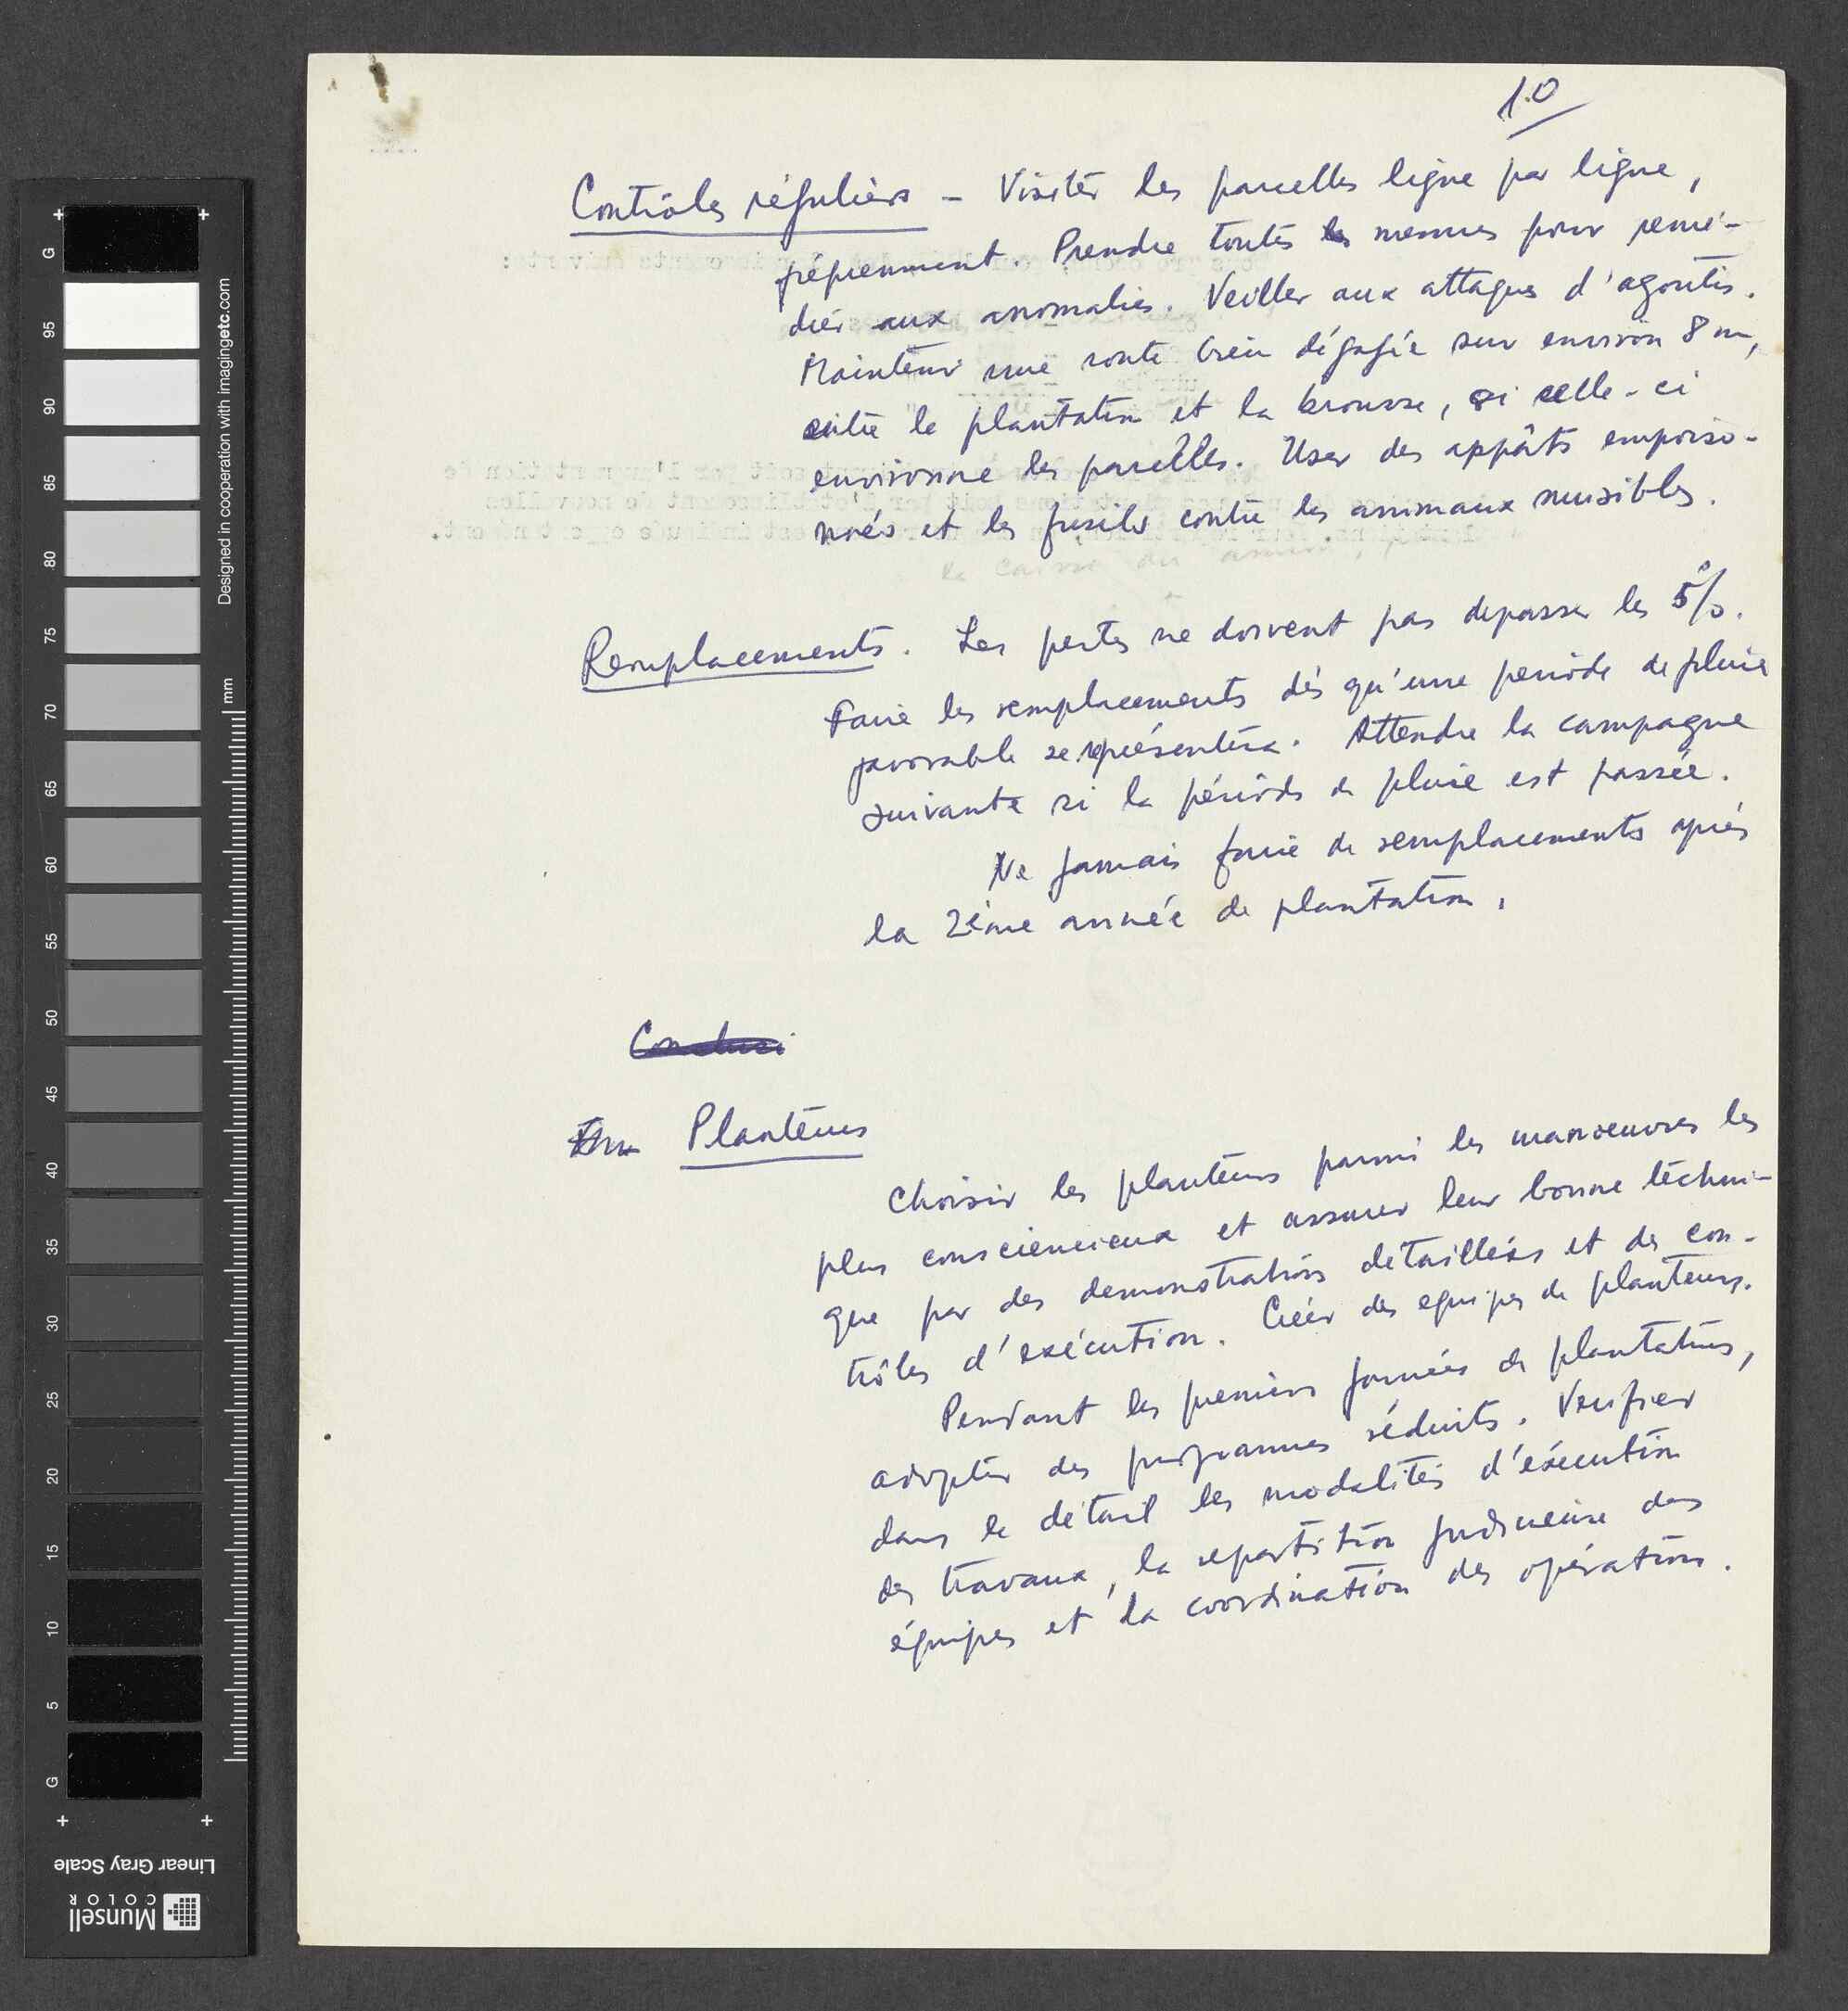 10
Contrôles réguliers - Visiter les parcelles ligne par ligne,
fréquemment. Prendre toutes les mesures pour remé-
dier aux anomalies. Veiller aux attaques d'agoutis.
Maintenir une route bien dégagée sur environ 8 m,
entre la plantation et la brousse, si celle-ci
environne les parcelles. User des appâts empoiso-
nnés et les fusils contre les animaux nuisibles.
Remplacements. Les pertes ne doivent pas depasser les 5%.
Faire les remplacements dès qu'une periode de pluie
favorable se représentera. Attendre la campagne
suivante si la période de pluie est passée.
Ne jamais faire de remplacements après
la 2ème année de plantation.
Conclusi
Planteurs
Choisir les planteurs parmi les manoeuvres les
plus consciencieux et assurer leur bonne techni-
que par des demonstrations détaillées et des con-
trôles d'exécution. Créer des equipes de planteurs.
Pendant les premières journées de plantations,
adopter des programmes réduits. Verifier
dans le détail les modalités d'éxécution
des travaux, la repartition judicieuse des
équipes et la coordination des opérations.
G
95
90
85
80
75
70
65
60
55
50
45
40
35
30
25
20
15
10
5
G
mm
Designed in cooperation with imagingetc.com
Linear Gray Scale
Munsell
COLOR